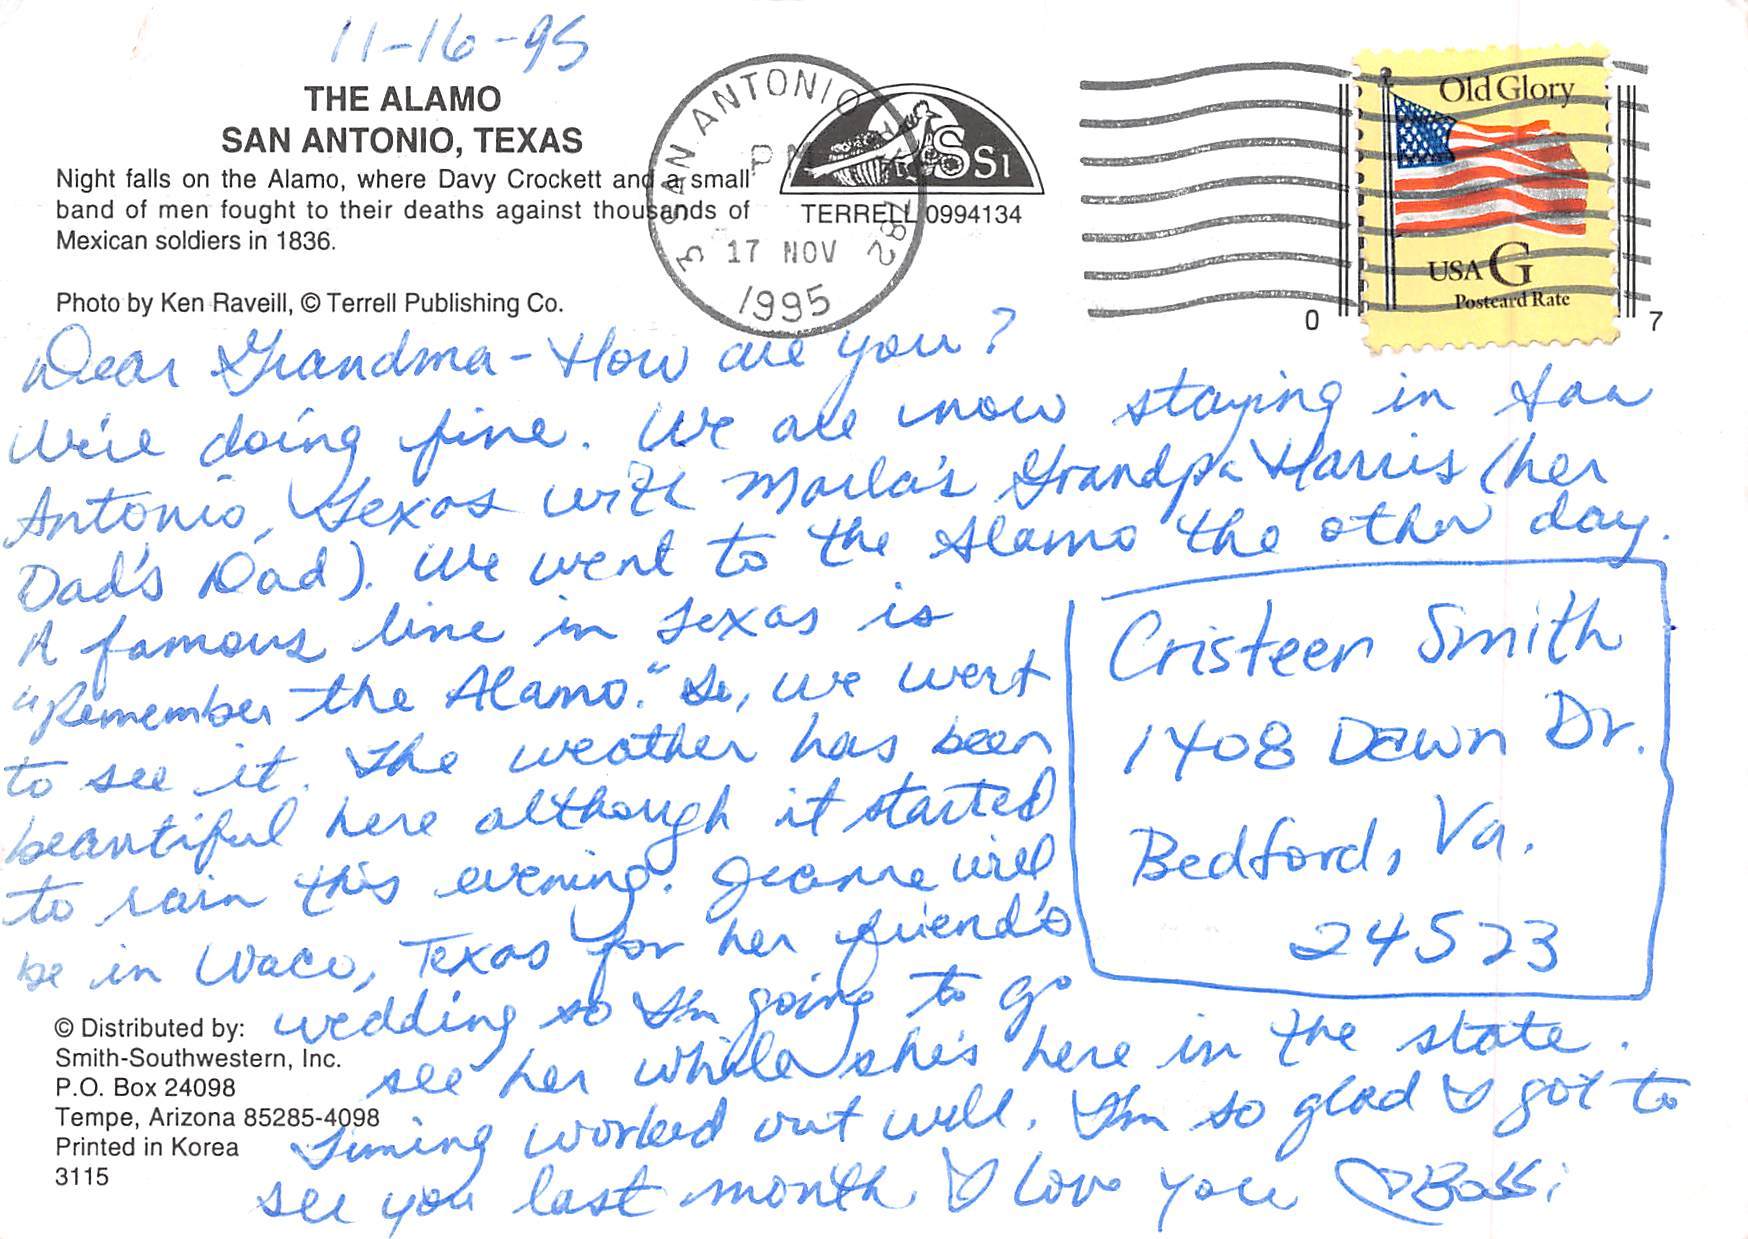 11-16-95
THE ALAMO
SAN ANTONIO, TEXAS
Night falls on the Alamo, where Davy Crockett and a small
band of men fought to their deaths against thousands of
Mexican soldiers in 1836.
Photo by Ken Raveill, © Terrell Publishing Co.
SAN ANTONIO
PM
17 NOV
1995
782
SSI
TERRELL 0994134
Old Glory
USA G
Postcard Rate
0 7
Dear Grandma - How are you?
We're doing fine. We are now staying in San
Antonio, Texas with Marla's Grandpa Harris (her
Dad's Dad). We went to the Alamo the other day.
A famous line in Texas is
"Remember the Alamo." So, we went
to see it. The weather has been
beautiful here although it started
to rain this evening. Jeanne will
be in Waco, Texas for her friend's
wedding so I'm going to go
see her while she's here in the state.
Timing worked out well. I'm so glad I got to
see you last month. I love you ♡
Cristeen Smith
1408 Dawn Dr.
Bedford, Va.
24523
© Distributed by:
Smith-Southwestern, Inc.
P.O. Box 24098
Tempe, Arizona 85285-4098
Printed in Korea
3115